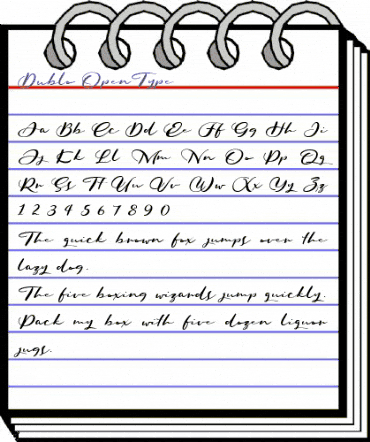 Dublo OpenType
Aa Bb Cc Dd Ee Ff Gg Hh Ii
Jj Kk Ll Mm Nn Oo Pp Qq
Rr Ss Tt Uu Vv Ww Xx Yy Zz
1 2 3 4 5 6 7 8 9 0
The quick brown fox jumps over the
lazy dog.
The five boxing wizards jump quickly.
Pack my box with five dozen liquor
jugs.